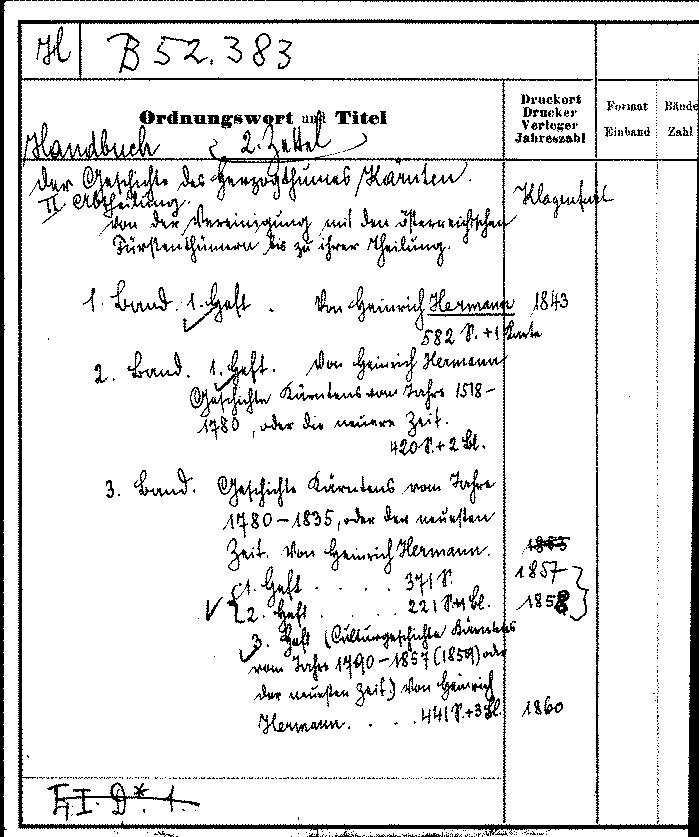 H B 52.383
Ordnungswort und Titel
Druckort
Drucker
Verleger
Jahreszahl
Format
Einband
Bände
Zahl
Handbuch (2. Zettel)
der Geschichte des Herzogthumes Kärnten.
Klagenfurt
II. Abtheilung.
Von der Vereinigung mit den österreichischen
Fürstenthümern bis zu ihrer Theilung.
1. Band. 1. Heft. Von Heinrich Hermann 1843
582 S. + 1 Karte
2. Band. 1. Heft. Von Heinrich Hermann
Geschichte Kärntens vom Jahre 1518–
1780, oder die neuere Zeit.
420 S. + 2 Bl.
3. Band. Geschichte Kärntens vom Jahre
1780–1835, oder der neuesten
Zeit. Von Heinrich Hermann.
1. Heft . . . . 371 S. 1857
2. Heft . . . . 221 S. + 1 Bl. 1858
3. Heft (Culturgeschichte Kärntens
vom Jahre 1790–1857 (1859) oder
der neuesten Zeit) Von Heinrich
Hermann. . . . 441 S. + 3 Bl. 1860
I. D* 1.